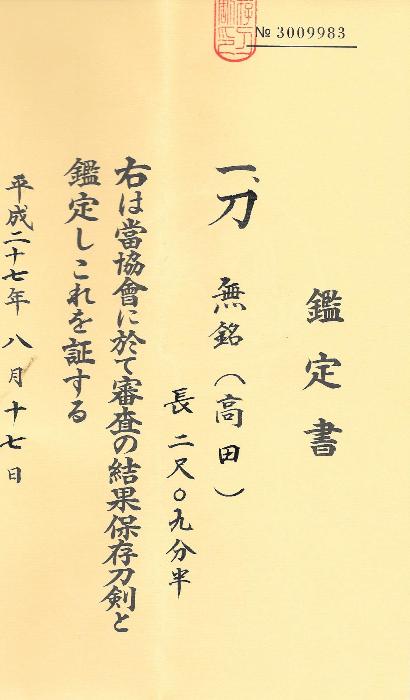 № 3009983
鑑定書
一、刀 無銘（高田）
長 二尺〇九分半
右は當協會に於て審査の結果保存刀剣と
鑑定しこれを証する
平成二十七年八月十七日